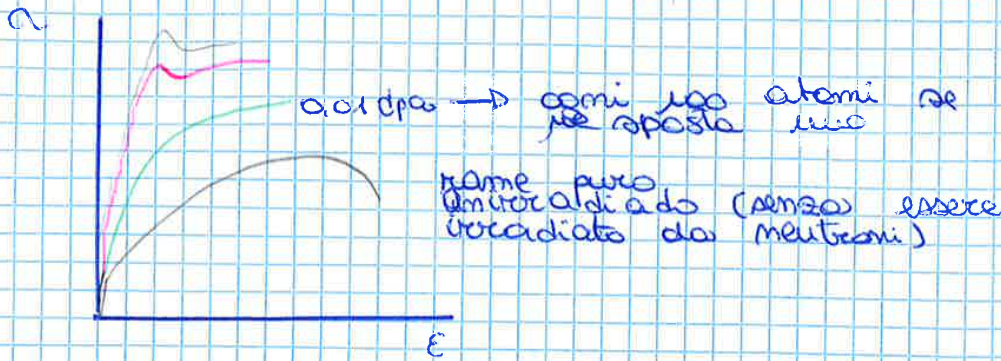 σ
0,01 dpa → ogni 100 atomi se
ne sposta uno
rame puro
unirradiado (senza essere
irradiato da neutroni)
ε